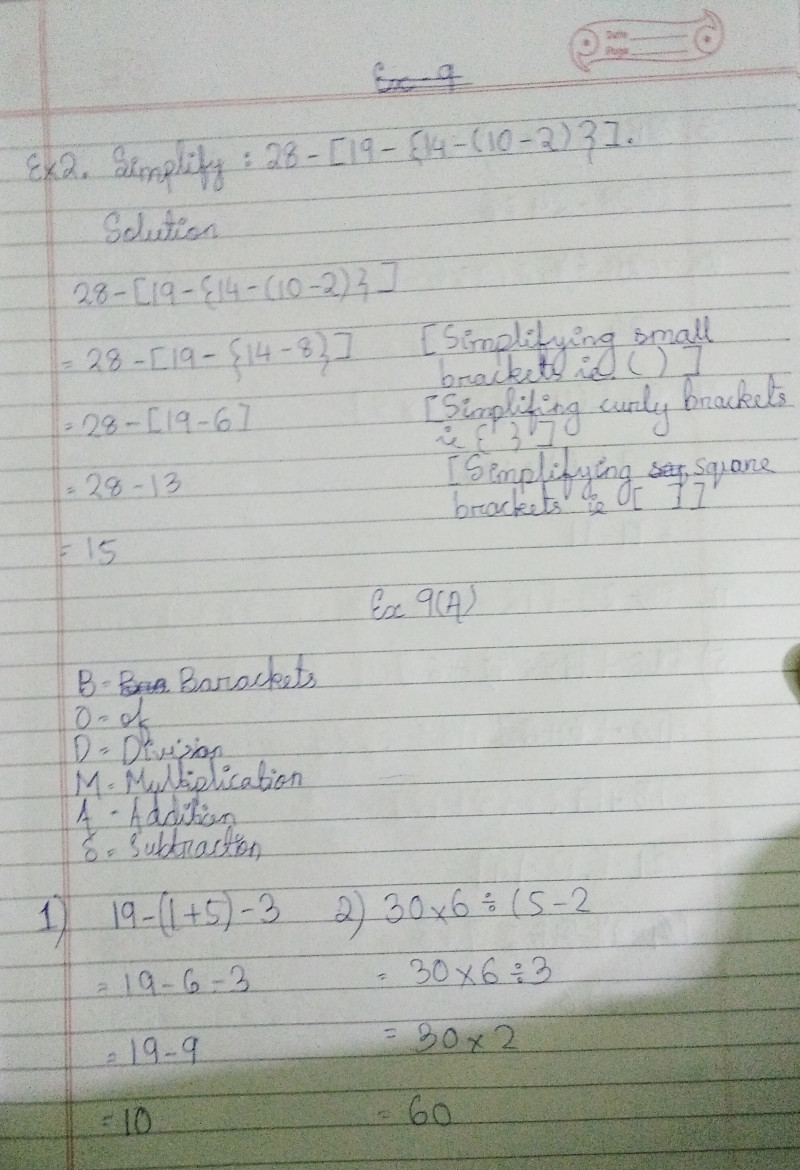 Date
Page
Ex-9
Ex2. Simplify : 28-[19-{14-(10-2)}].
Solution
28-[19-{14-(10-2)}]
= 28-[19-{14-8}] [Simplifying small
brackets ie ( )]
= 28-[19-6] [Simplifing curly brackets
ie { }]
= 28-13 [Simplifying sqr square
brackets ie [ ]]
= 15
Ex 9(A)
B = Bra Barackets
O = of
D = Division
M = Multiplication
A - Addition
S = Subtraction
1) 19-(1+5)-3 2) 30×6÷(5-2
= 19-6-3 = 30×6÷3
= 19-9 = 30×2
= 10 = 60